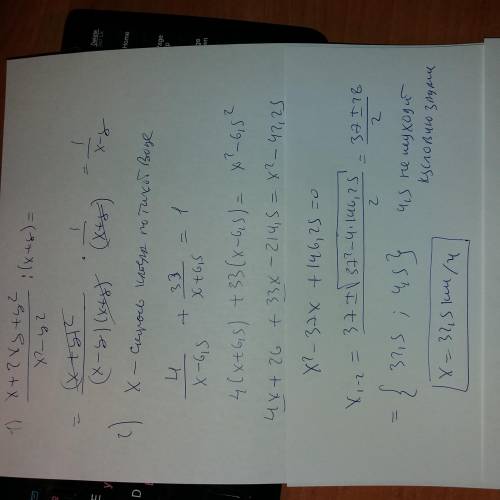 1) x+2xy+y² / x²-y² : (x+y) =
= (x+y)² / (x-y)(x+y) · 1 / (x+y) = 1 / x-y
2) x – скорость катера по тихой воде
4 / x-6,5 + 33 / x+6,5 = 1
4(x+6,5) + 33(x-6,5) = x²-6,5²
4x+26 + 33x-214,5 = x²-42,25
x²-37x+146,25=0
x₁₋₂ = 37±√37²-4·146,25 / 2 = 37±28 / 2
= { 32,5 ; 4,5 } 4,5 не подходит
условию задачи
x=32,5 км/ч